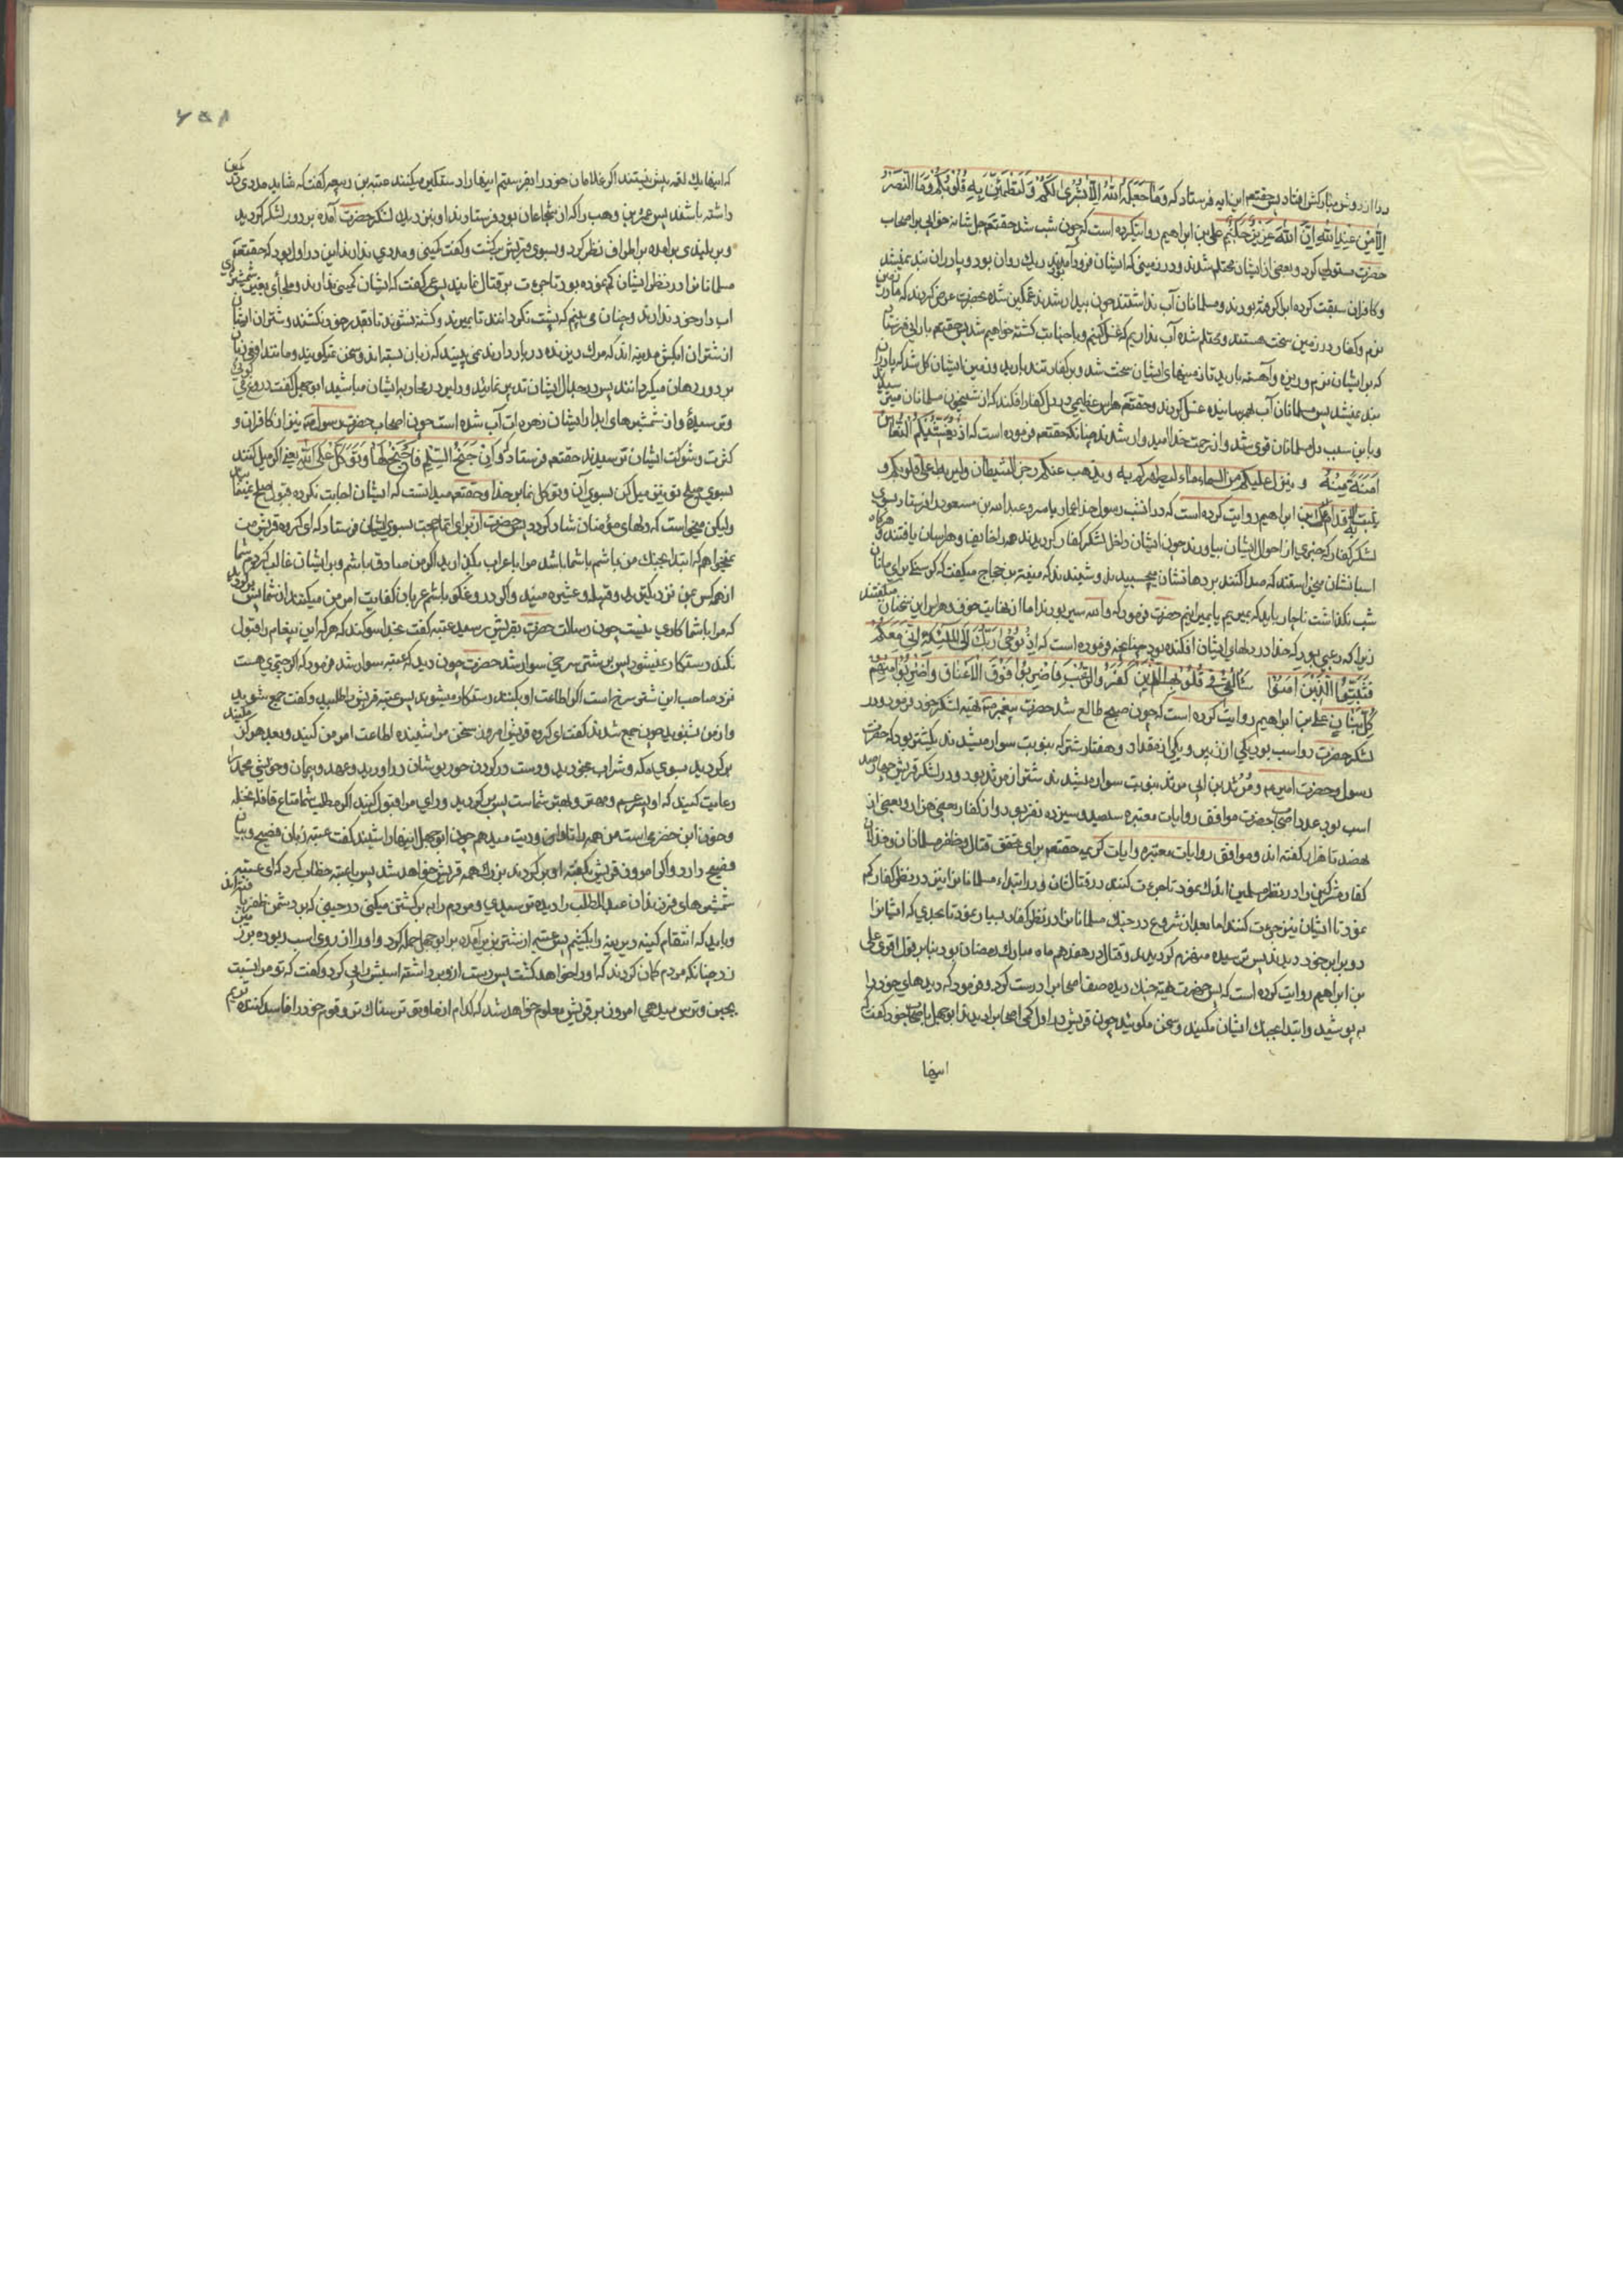 ردا از دوش مبارکش افتاد پس حقتعم این ایه فرستاد که وَمَا جَعَلَهُ اللهُ اِلَّا بُشْرٰی لَکُمْ وَلِتَطْمَئِنَّ بِهِ قُلُوبُکُمْ وَمَا النَّصْرُ
اِلَّا مِنْ عِنْدِ اللهِ اِنَّ اللهَ عَزِیزٌ حَکِیمٌ علی بن ابراهیم روایتکرده است که چون شب شد حقتعم جل شانه خوابی بر اصحاب
حضرت مستولی کرد و بعضی از ایشان محتلم شدند و در زمینی که ایشان فرود آمدند ریك روان بود و پا در ان بند نمیشد
و کافران سبقت کرده اب گرفته بودند و مسلمانان آب نداشتند چون بیدار شدند غمکین شده بحضرت عرض کردند که ما در زمین
نرم و کفار در زمین سخت هستند و محتلم شده آب نداریم که غسل کنیم و با جنابت کشته خواهیم شد پس حقتعم بارانی فرستاد
که بر ایشان نرم و ریزه و آهسته بارید تا زمینهای ایشان سخت شد و بر کفار تند بارید و زمین ایشان کل شد که پا در ان
بند نمیشد پس مسلمانان آب بهم رسانیده غسل کردند و حقتعم هراس عظیمی در دل کفار افکند که از شبیخون مسلمانان میترسیدند
و باین سبب دل مسلمانان قوی شد و از رحمت خدا امیدوار شدند چنانکه حقتعم فرموده است که اِذْ یُغَشِّیکُمُ النُّعَاسَ
اَمَنَةً مِنْهُ و ینزل علیکم من السماء ماء لیطهرکم به و یذهب عنکم رجز الشیطان ولیربط علی قلوبکم و
یثبت به الاقدام علی بن ابراهیم روایت کرده است که در انشب رسول خدا عمار یاسر و عبد الله بن مسعود را فرستاد بسوی
لشکر کفار که خبری از احوال ایشان بیاورند چون ایشان داخل لشکر کفار کردیدند همه را خایف و هراسان یافتند و هرکاه
اسبانشان میخواستند که صدا کنند بر دهانشان میچسبیدند و شنیدند که منبه بن حجاج میکفت که کرسنکی برای ما نان
شب نکذاشت ناچار باید که بمیریم یا بمیرانیم حضرت فرمود که والله سیر بودند اما از نهایت خوف و هراس این سخنان میکفتند
زیرا که رعبی بود که خدا در دلهای ایشان افکنده بود چنانچه فرموده است که اِذْ یُوحِی رَبُّكَ اِلَی المَلٰئِکَةِ اَنِّی مَعَکُمْ
فَثَبِّتُوا الَّذِینَ اٰمَنُوا سَاُلْقِی فِی قُلُوبِ الَّذِینَ کَفَرُوا الرُّعْبَ فَاضْرِبُوا فَوْقَ الْاَعْنَاقِ وَاضْرِبُوا مِنْهُمْ
کُلَّ بَنَانٍ علی بن ابراهیم روایت کرده است که چون صبح طالع شد حضرت پیغمبر ص تهیه لشکر خود فرمود و در
لشکر حضرت دو اسب بود یکی از زبیر و یکی از مقداد و هفتاد شتر که بنوبت سوار میشدند یکشتر بود که حضرت
رسول و حضرت امیر ع و مَرْثَد بن ابی مرثد بنوبت سوار میشدند شتر از مرثد بود و در لشکر قریش چهار صد
اسب بود عدد اصحاب حضرت موافق روایات معتبره سیصد و سیزده نفر بود و از کفار بعضی هزار و بعضی از
نهصد تا هزار کفته اند و موافق روایات معتبره و ایات کریمه حقتعم برای تحقق قتال و ظفر مسلمانان و خذلان
کفار مشرکین را در نظر مسلمین اندك نمود تا جرءت کنند در قتال ایشان و در ابتداء مسلمانانرا نیز در نظر کفار کم
نمود تا ایشان نیز جرءت کنند اما بعد از شروع در جنك مسلمانانرا در نظر کفار بسیار نمود تا بحدی که ایشانرا
دو برابر خود دیدند پس ترسیده منهزم کردیدند و قتال در هفدهم ماه مبارك رمضان بود بنا بر قول اقوی علی
بن ابراهیم روایت کرده است که پس حضرت تهیه جنك دیده صف اصحابرا درست کرد و فرمود که دیدهای خود را
بپوشید و ابتدا بجنك ایشان مکنید و سخن مکوئید چون قریش در اول کمی اصحابرا دیدند ابوجهل باصحاب خود کفت که
اینها
۶۵۸
که اینها یك لقمه بیش نیستند اکر غلامان خود را بفرستیم اینها را دستکیر میکنند عتبه بن ربیعه کفت که شاید مددی و کمین
داشته باشند پس عمر بن وهب را که از شجاعان بود فرستادند او نیز دید لشکر حضرت آمده بر دور لشکر کردید
و بر بلندی بر امده بر اطراف نظر کرد و بسوی قریش برکشت و کفت کمینی و مددی ندارند این در اول بود که حقتعم
مسلمانانرا در نظر ایشان کم نموده بود تا جرءت بر قتال نمایند پس عمر کفت که ایشان کمینی ندارند و ملجأی بغیر شمشیر
اب دار خود ندارند و چنان می بینم که پشت نکردانند تا بمیرند و کشته نشوند تا بقدر خود نکشند و شتران ایشان
از شتران ابکش مدینه اند که مرك ریزنده در بار دارند نمی بینید که زبان بسته اند و سخن نمیکویند و مانند افعی زبان
بر دور دهان میکردانند پس در جدال ایشان تدبیر نمائید و دلیر در محاربه ایشان مباشید ابوجهل کفت دروغ میکوئی
و ترسیدهٔ و از شمشیرهای ابدار ایشان زهره ات آب شده است چون اصحاب حضرت رسول ص نیز از کافران و
کثرت و شوکت ایشان ترسیدند حقتعم فرستاد که وَاِنْ جَنَحُوا لِلسَّلْمِ فَاجْنَحْ لَهَا وَتَوَکَّلْ عَلَی اللهِ یعنی اکر میل کنند
بسوی صلح تو نیز میل کن بسوی ان و توکل نما بر خدا و حقتعم میدانست که ایشان اجابت نکرده قبول صلح نمینمایند
ولیکن میخواست که دلهای مؤمنان شاد کردد پس حضرت از برای اتمام حجت بسوی ایشان فرستاد که ای کروه قریش من
نمیخواهم که ابتدا بجنك من باشم با شما باشد مرا با عراب بکذارید اکر من صادق باشم و بر ایشان غالب کردم شما
از همه کس بمن نزدیکترید و قبیله و عشیره منید و اکر دروغکو باشم عربان کفایت امر من میکنند از شما پس برکردید
که مرا با شما کاری نیست چون رسالت حضرت بقریش رسید عتبه کفت بخدا سوکند که هر که این پیغام را قبول
نکند رستکار نمیشود پس بر شتر سرخی سوار شد حضرت چون دید که عتبه سوار شد فرمود که اکر خیری هست
نزد صاحب این شتر سرخ است اکر اطاعت او بکنند رستکار میشوند پس عتبه قریش را طلبید و کفت جمع شوید
و از من بشنوید چون جمع شدند کفت ای کروه قریش امروز سخن مرا شنیده اطاعت امر من کنید و بعد هر کز مکنید
برکردید بسوی مکه و شراب بخورید و دست در کردن حور پوشان در اورید و عهد و پیمان و خویشی محمد را
رعایت کنید که او پسر عم و مهتر و بهتر شماست پس برکردید و رای مرا قبول کنید اکر مطلب شما متاع قافله نخله
و خون ابن حضرمی است من همه را تاوان و دیت میدهم چون ابوجهل اینها را شنید کفت عتبه زبان فصیح و بیان
فضیح دارد و اکر امروز قریش بکفته او برکردند بزرك همه قریش خواهد شد پس با عتبه خطاب کرد که ای عتبه
شمشیرهای فرزندان عبد المطلب را دیده ترسیدی و مردم را به برکشتن میکنی در حینی که بر دشمن ظفر یافته ایم
و باید که انتقام کینه دیرینه را بکشیم پس عتبه از شتر بزیر آمده بر ابوجهل حمله کرد و او را از روی اسب ربوده بر زمین
زد چنانکه مردم کمان کردند که او را خواهد کشت پس دست از او برداشته اسبش را پی کرد و کفت که تو مرا نسبت
بجبن و ترس میدهی امروز بر قریش معلوم خواهد شد که کدام از ما و تو ترسناك تر و قوم خود را فاسد کننده تریم